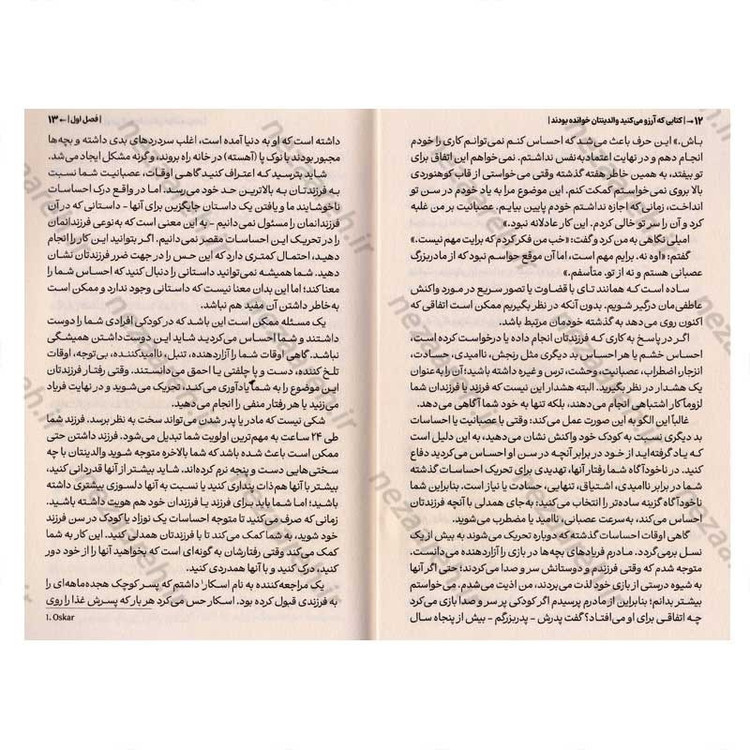 ۱۲ → | کتابی که آرزو می‌کنید والدینتان خوانده بودند |
باش.» این حرف باعث می‌شد که احساس کنم نمی‌توانم کاری را خودم
انجام دهم و در نهایت اعتمادبه‌نفس نداشتم. نمی‌خواهم این اتفاق برای
تو بیفتد، به همین خاطر هفته گذشته وقتی می‌خواستی از قاب کوهنوردی
بالا بروی نمی‌خواستم کمکت کنم. این موضوع مرا به یاد خودم در سن تو
انداخت، زمانی که اجازه نداشتم خودم پایین بیایم. عصبانیت بر من غلبه
کرد و آن را سر تو خالی کردم. این کار عادلانه نبود.»
امیلی نگاهی به من کرد و گفت: «خب من فکر کردم که برایت مهم نیست.»
گفتم: «اوه نه. برایم مهم است، اما آن موقع حواسم نبود که از مادربزرگ
عصبانی هستم و نه از تو. متأسفم.»
ساده است که همانند تای با قضاوت یا تصور سریع در مورد واکنش
عاطفی‌مان درگیر شویم. بدون آنکه در نظر بگیریم ممکن است اتفاقی که
اکنون روی می‌دهد به گذشته خودمان مرتبط باشد.
اگر در پاسخ به کاری که فرزندتان انجام داده یا درخواست کرده است،
احساس خشم یا هر احساس بد دیگری مثل رنجش، ناامیدی، حسادت،
انزجار، اضطراب، عصبانیت، وحشت، ترس و غیره داشته باشید؛ آن را به‌عنوان
یک هشدار در نظر بگیرید. البته هشدار این نیست که فرزند یا فرزندان شما
لزوماً کار اشتباهی انجام می‌دهند، بلکه تنها به خود شما آگاهی می‌دهد.
غالباً این الگو به این صورت عمل می‌کند: وقتی با عصبانیت یا احساسات
بد دیگری نسبت به کودک خود واکنش نشان می‌دهید، به این دلیل است
که یاد گرفته‌اید از خود در برابر آنچه در سن او احساس می‌کردید دفاع
کنید. در ناخودآگاه شما رفتار آنها، تهدیدی برای تحریک احساسات گذشته
شما در برابر ناامیدی، اشتیاق، تنهایی، حسادت یا نیاز است. بنابراین شما
ناخودآگاه گزینه ساده‌تر را انتخاب می‌کنید: به جای همدلی با آنچه فرزندتان
احساس می‌کند، به‌سرعت عصبانی، ناامید یا مضطرب می‌شوید.
گاهی اوقات احساسات گذشته که دوباره تحریک می‌شوند به بیش از یک
نسل برمی‌گردد. مادرم فریادهای بچه‌ها در بازی را آزاردهنده می‌دانست.
متوجه شدم که وقتی فرزندم و دوستانش سر و صدا می‌کردند؛ حتی اگر آنها
به شیوه درستی از بازی خود لذت می‌بردند، من اذیت می‌شدم. می‌خواستم
بیشتر بدانم؛ بنابراین از مادرم پرسیدم اگر کودکی پر سر و صدا بازی می‌کرد
چه اتفاقی برای او می‌افتاد؟ گفت پدرش - پدربزرگم - بیش از پنجاه سال
| فصل اول | ← ۱۳
داشته است که او به دنیا آمده است، اغلب سردردهای بدی داشته و بچه‌ها
مجبور بودند با نوک پا (آهسته) در خانه راه بروند، وگرنه مشکل ایجاد می‌شد.
شاید بترسید که اعتراف کنید گاهی اوقات، عصبانیت شما نسبت
به فرزندتان به بالاترین حد خود می‌رسد. اما در واقع درک احساسات
ناخوشایند ما و یافتن یک داستان جایگزین برای آنها - داستانی که در آن
فرزندانمان را مسئول نمی‌دانیم - به این معنی است که به‌نوعی فرزندانمان
را در تحریک این احساسات مقصر نمی‌دانیم. اگر بتوانید این کار را انجام
دهید، احتمال کمتری دارد که این حس را در جهت ضرر فرزندتان نشان
دهید. شما همیشه نمی‌توانید داستانی را دنبال کنید که احساس شما را
معنا کند؛ اما این بدان معنا نیست که داستانی وجود ندارد و ممکن است
به‌خاطر داشتن آن مفید هم نباشد.
یک مسئله ممکن است این باشد که در کودکی افرادی شما را دوست
داشتند و شما احساس می‌کردید شاید این دوست‌داشتن همیشگی
نباشد. گاهی اوقات شما را آزاردهنده، تنبل، ناامیدکننده، بی‌توجه، اوقات
تلخ کننده، دست و پا چلفتی یا احمق می‌دانستند. وقتی رفتار فرزندتان
این موضوع را به شما یادآوری می‌کند، تحریک می‌شوید و در نهایت فریاد
می‌زنید یا هر رفتار منفی را انجام می‌دهید.
شکی نیست که مادر یا پدر شدن می‌تواند سخت به نظر برسد. فرزند شما
طی ۲۴ ساعت به مهم‌ترین اولویت شما تبدیل می‌شود. فرزند داشتن حتی
ممکن است باعث شده باشد که شما بالاخره متوجه شوید والدینتان با چه
سختی‌هایی دست و پنجه نرم کرده‌اند. شاید بیشتر از آنها قدردانی کنید،
بیشتر با آنها هم‌ذات پنداری کنید یا نسبت به آنها دلسوزی بیشتری داشته
باشید؛ اما شما باید برای فرزند یا فرزندان خود هم هویت داشته باشید.
زمانی که صرف می‌کنید تا متوجه احساسات یک نوزاد یا کودک در سن فرزند
خود شوید، به شما کمک می‌کند تا با فرزندتان همدلی کنید. این کار به شما
کمک می‌کند وقتی رفتارشان به گونه‌ای است که بخواهید آنها را از خود دور
کنید، درک کنید و با آنها همدردی کنید.
یک مراجعه‌کننده به نام اسکار¹ داشتم که پسر کوچک هجده‌ماهه‌ای را
به فرزندی قبول کرده بود. اسکار حس می‌کرد هر بار که پسرش غذا را روی
1. Oskar
nezareh.ir